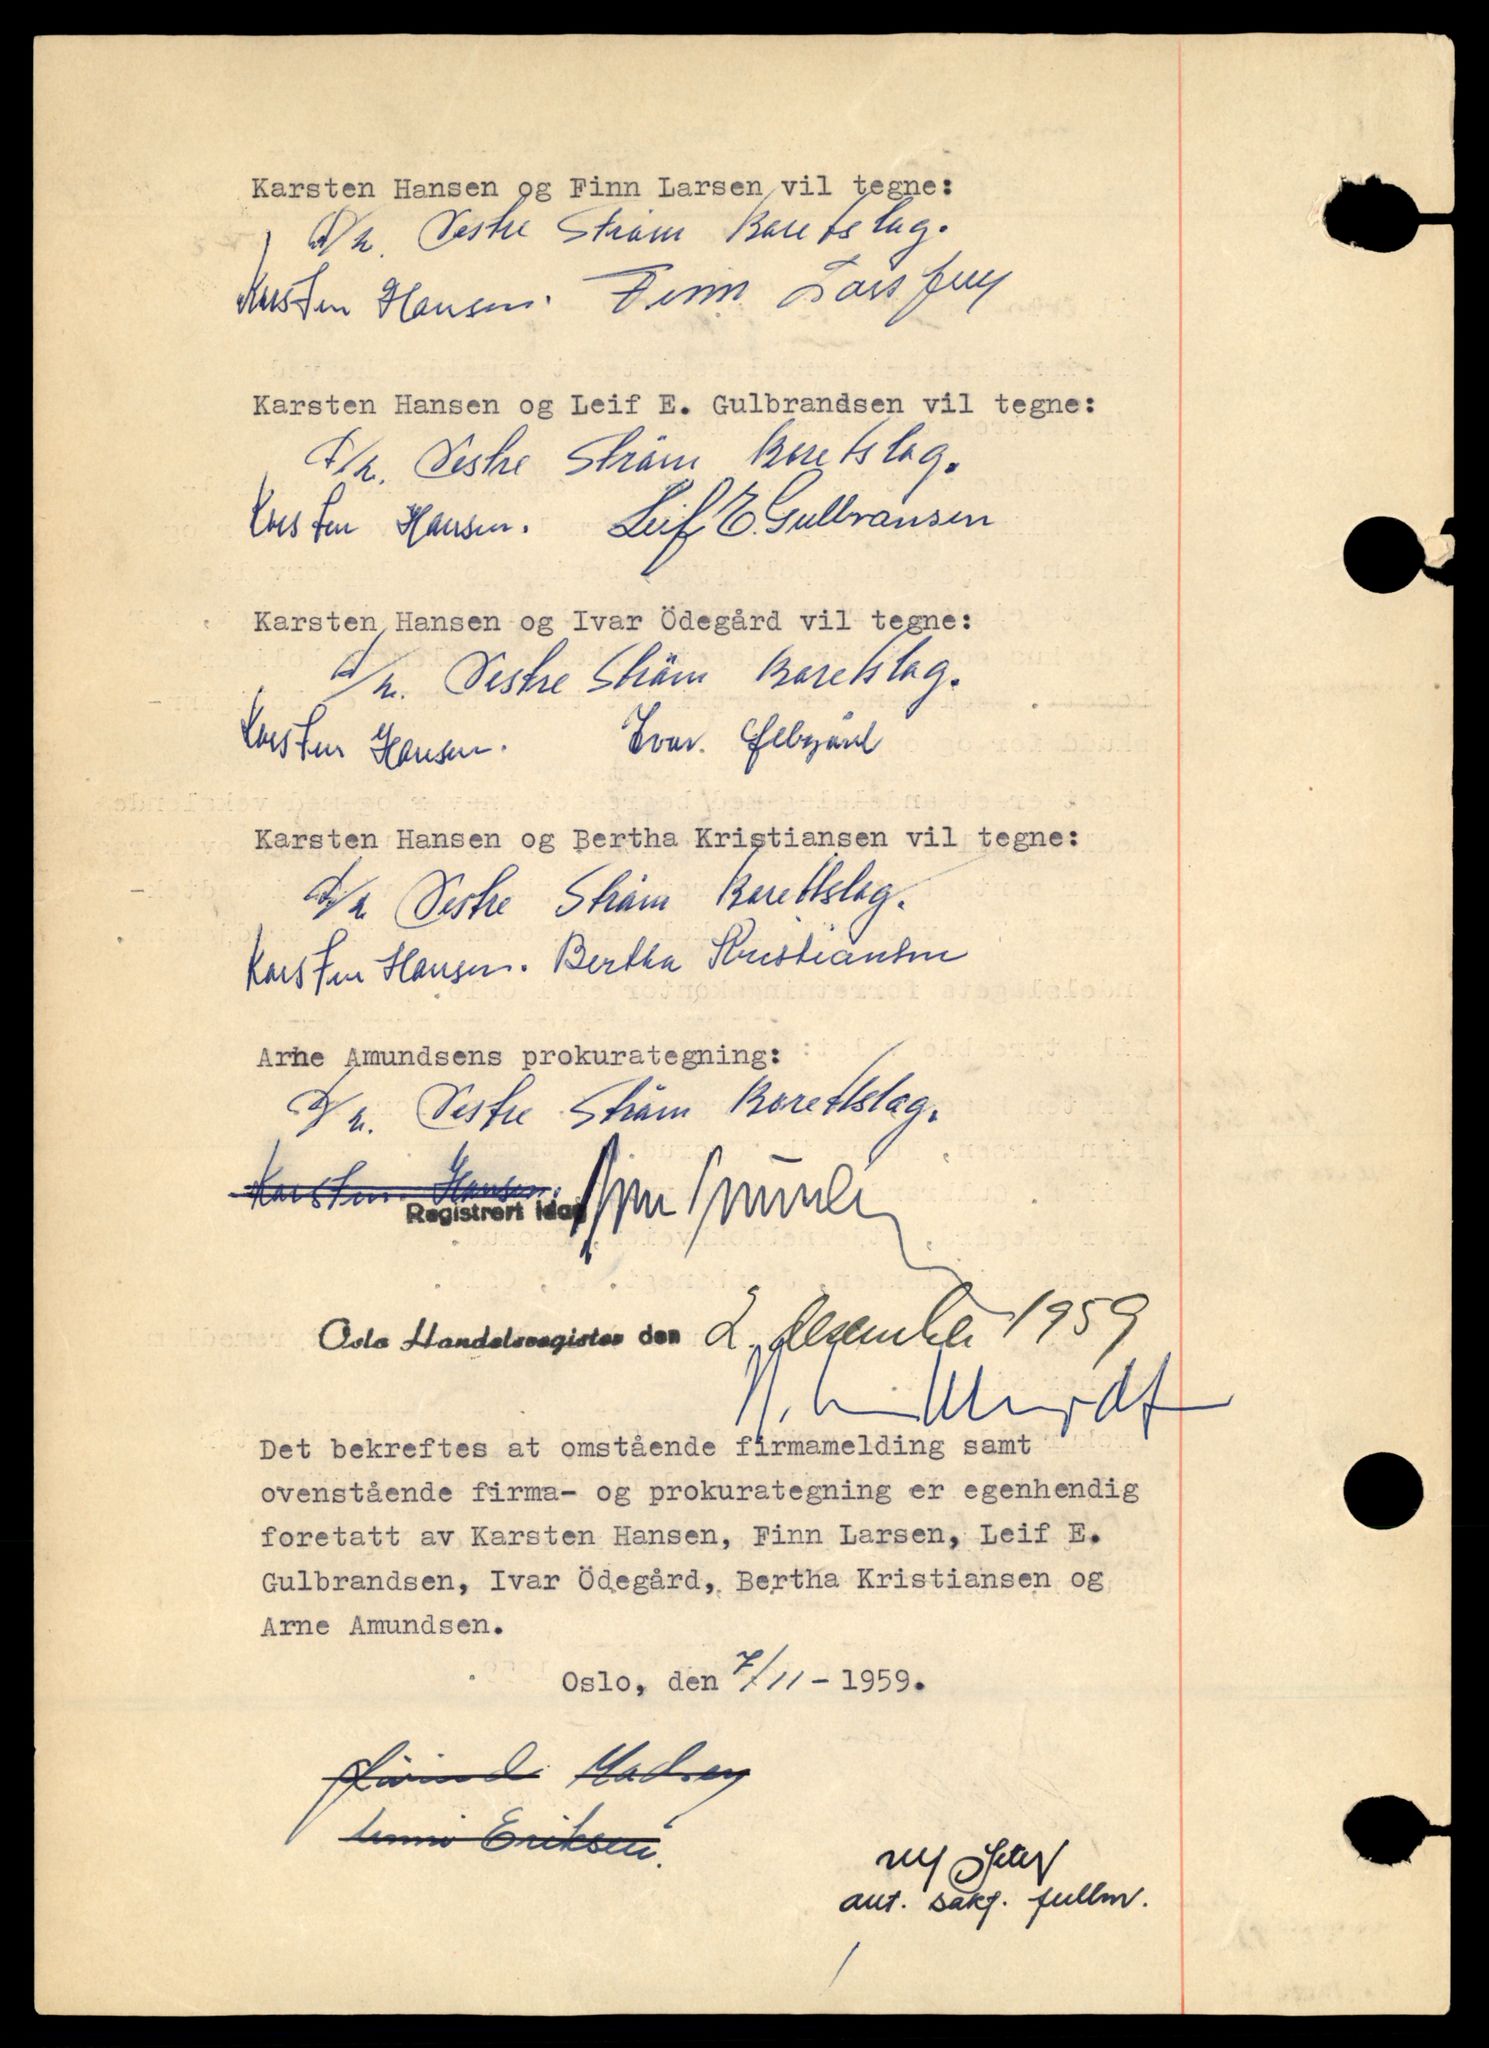 Karsten Hansen og Finn Larsen vil tegne:
A/L. Vestre Ström Borettslag.
Karsten Hansen. Finn Larssen
Karsten Hansen og Leif E. Gulbrandsen vil tegne:
A/L. Vestre Ström Borettslag.
Karsten Hansen. Leif E. Gulbransen
Karsten Hansen og Ivar Ödegård vil tegne:
A/L. Vestre Ström Borettslag.
Karsten Hansen. Ivar
Karsten Hansen og Bertha Kristiansen vil tegne:
A/L Vestre Ström Borettslag.
Karsten Hansen. Bertha Kristiansen
Arne Amundsens prokurategning:
A/L. Vestre Ström Borettslag.
Karsten Hansen.
Registrert idag
Oslo Handelsregister den 2. desember 1959
Det bekreftes at omstående firmamelding samt
ovenstående firma- og prokurategning er egenhendig
foretatt av Karsten Hansen, Finn Larsen, Leif E.
Gulbrandsen, Ivar Ödegård, Bertha Kristiansen og
Arne Amundsen.
Oslo, den 7/11 - 1959.
Eriksen.
aut. sakf. fullm.